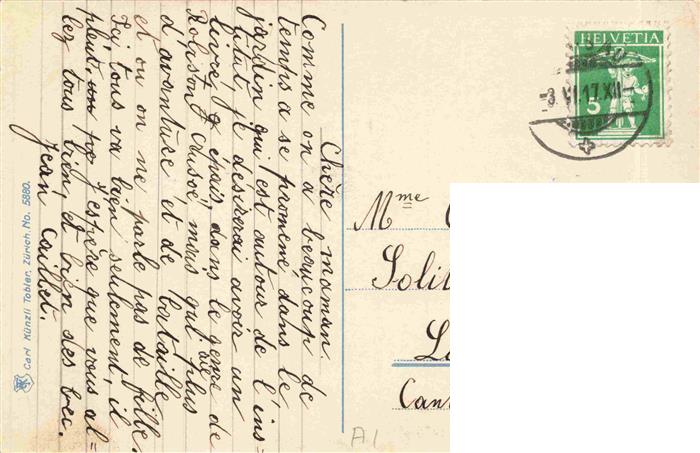 Chère maman
Comme on a beaucoup de
temps a se promené dans le
jardin qui est autour de l'ins-
titut, je désirerai avoir un
livre, mais, dans le genre de
Robinson Crusoé, mais qui aie plus
d'avanture et de bataille
et ou on ne parle pas de fille.
Ici tous va bien seulement, il
pleut, un po J'espère que vous al-
lez tous bien, et bien des bec.
Jean Caillet.
Carl Künzli Tobler, Zürich, No. 5880.
HELVETIA
5
-3.VI.17.XII-
Mme
Solit
La
Can
A1